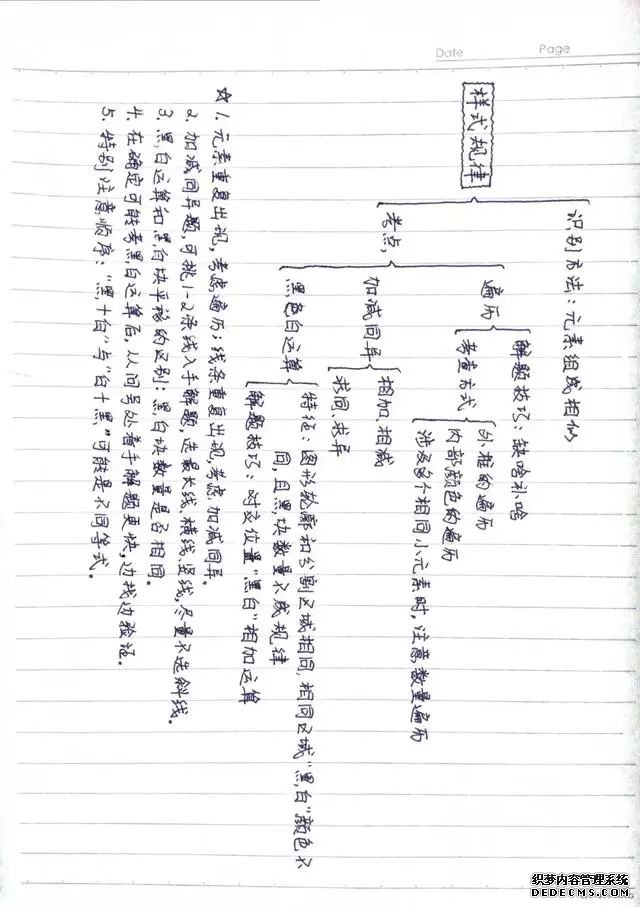 Date Page
样式规律
识别方法:元素组成相似
考点
遍历
解题技巧:缺啥补啥
考查方式
外框的遍历
内部颜色的遍历
涉及多个相同小元素时,注意数量遍历
加减同异
相加、相减
求同、求异
黑色白运算
特征:图形轮廓和分割区域相同,相同区域“黑、白”颜色不
同,且黑块数量不成规律
解题技巧:对应位置“黑白”相加运算
☆ 1. 元素重复出现,考虑遍历;线条重复出现,考虑加减同异。
2. 加减同异题,可挑1-2条线入手解题,选最长线、横线、竖线,尽量不选斜线。
3. 黑白运算和黑白块平移的区别:黑白块数量是否相同。
4. 在确定可能考黑白运算后,从问号处着手解题更快,边找边验证。
5. 特别注意顺序:“黑+白”与“白+黑”可能是不同等式。
织梦内容管理系统
DEDECMS.COM